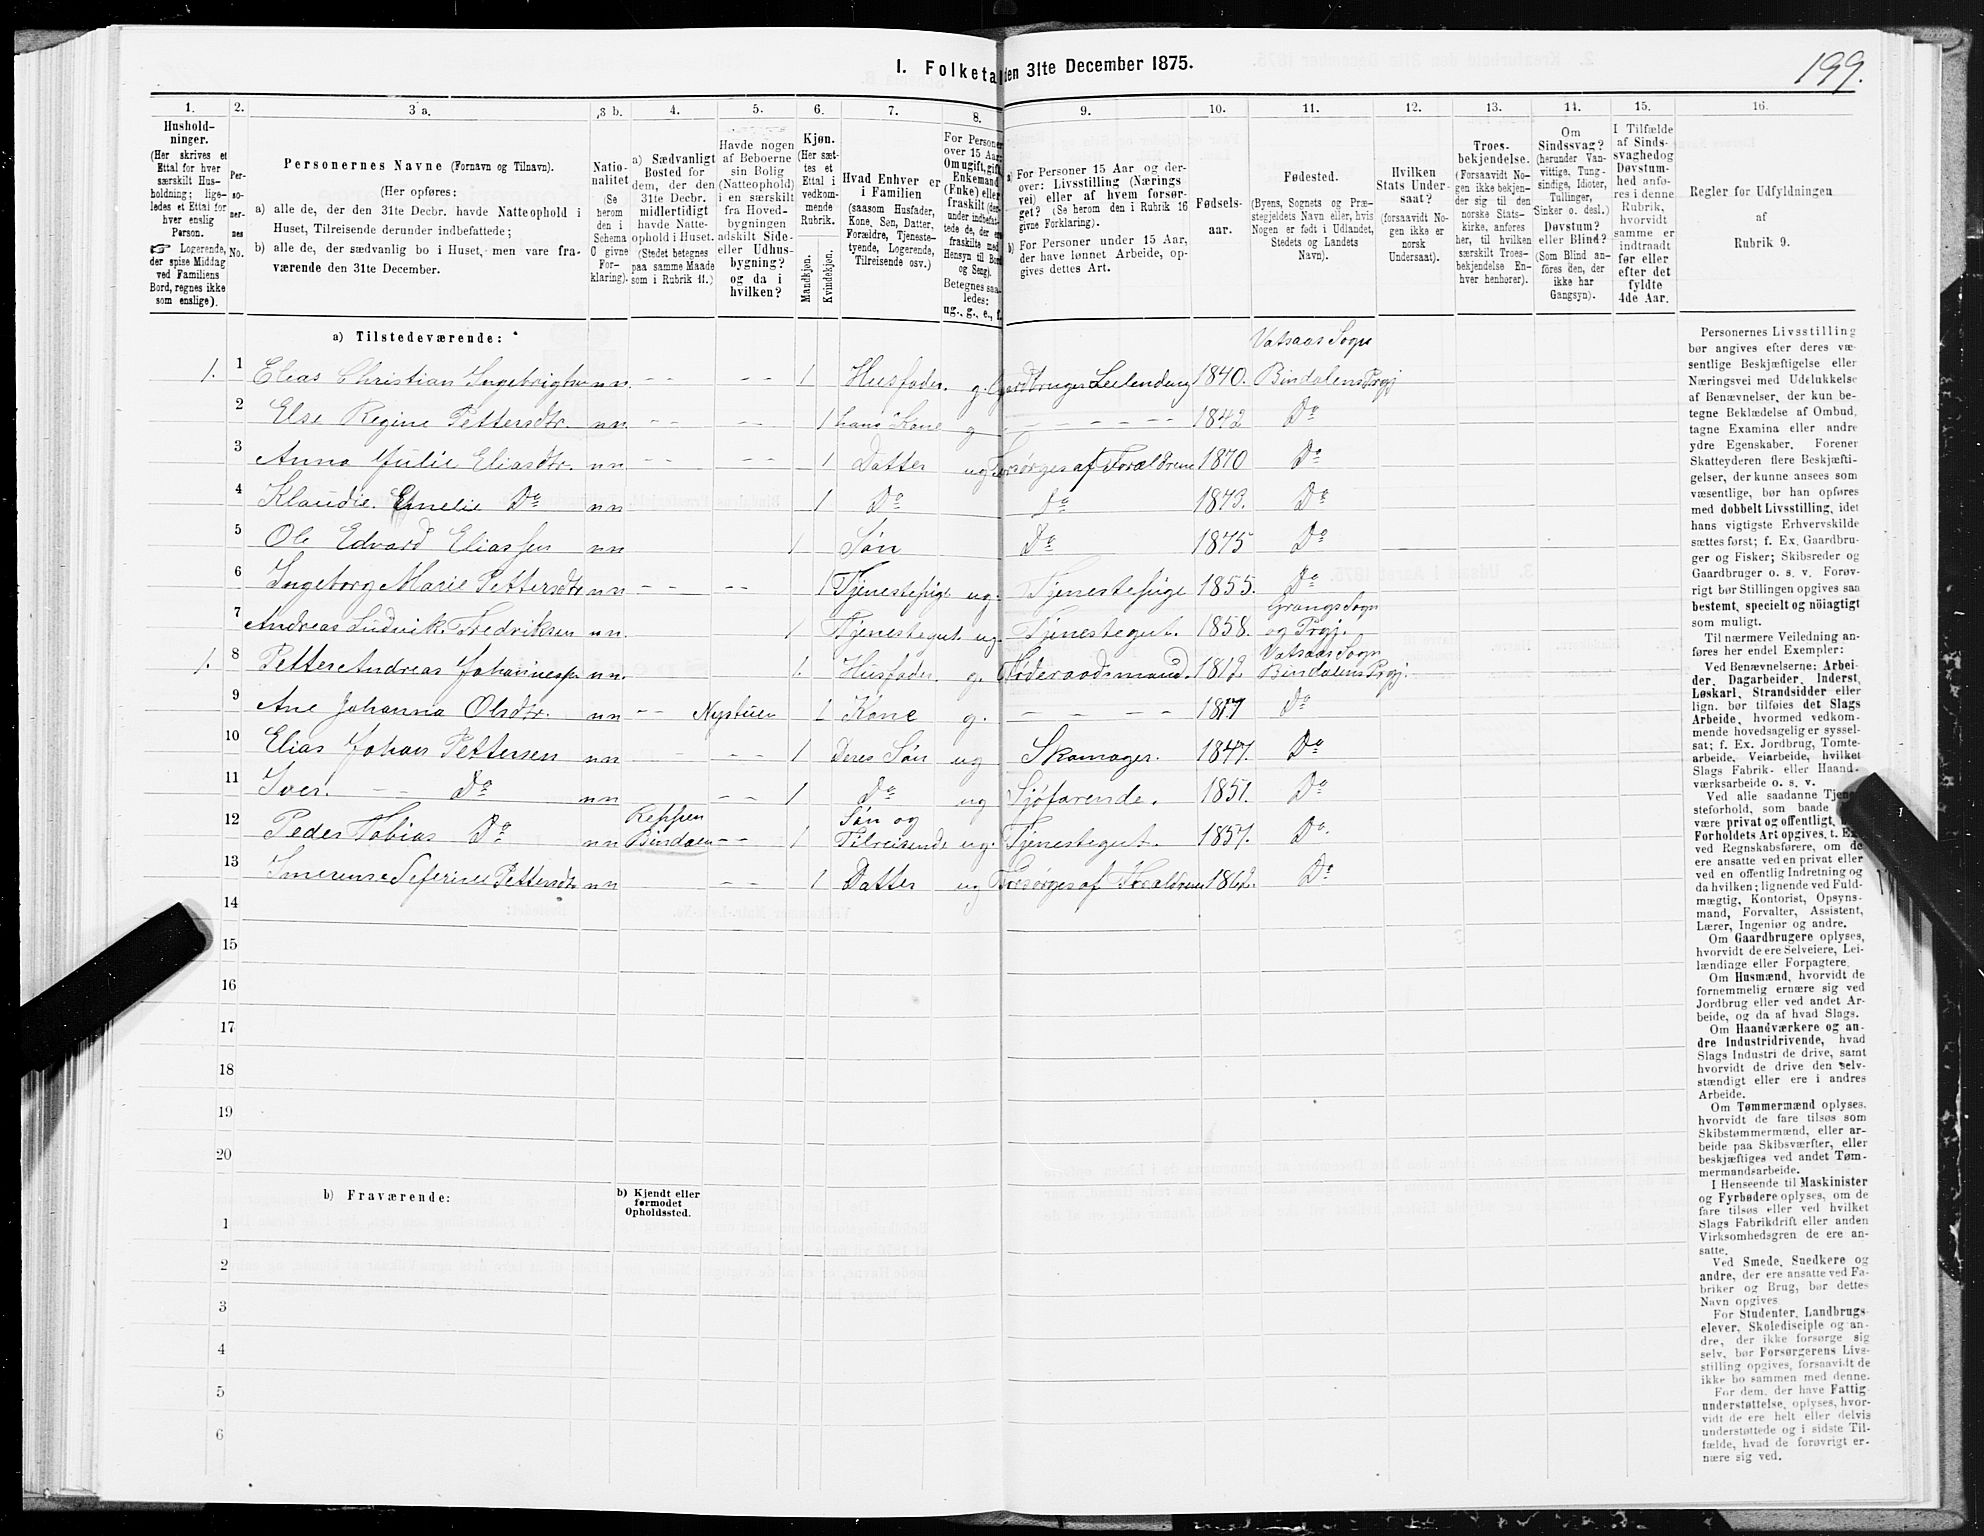 I. Folketa
den 31te December 1875.
199.
1.
2.
3 a.
3 b.
4.
5.
6.
7.
8.
9.
10.
11.
12.
13.
14.
15.
16.
Hushold-
ninger.
(Her skrives et
Ettal for hver
særskilt Hus-
holdning; lige-
ledes et Ettal for
hver enslig
Person.
☞ Logerende,
der spise Middag
ved Familiens
Bord, regnes ikke
som enslige).
Per-
so-
ner-
nes
No.
Personernes Navne (Fornavn og Tilnavn).
(Her opføres:
a) alle de, der den 31te Decbr. havde Natteophold i
Huset, Tilreisende derunder indbefattede;
b) alle de, der sædvanlig bo i Huset, men vare fra-
værende den 31te December.
Natio-
nalitet
(Se
herom
den i
Schema
O givne
For-
klaring).
a) Sædvanligt
Bosted for
dem, der den
31te Decbr.
midlertidigt
havde Natte-
ophold i Huset.
(Stedet betegnes
paa samme Maade
som i Rubrik 11.)
Havde nogen
af Beboerne
sin Bolig
(Natteophold)
i en særskilt
fra Hoved-
bygningen
adskilt Side-
eller Udhus-
bygning?
og da i
hvilken?
Kjøn.
(Her sæt-
tes et
Ettal i
vedkom-
mende
Rubrik.
Mandkjøn.
Kvindekjøn.
Hvad Enhver er
i Familien
(saasom Husfader,
Kone, Søn, Datter,
Forældre, Tjeneste-
tyende, Logerende,
Tilreisende osv.)
For Personer
over 15 Aar:
Om ugift, gift,
Enkemand
(Enke) eller
fraskilt (der-
under indbefat-
tede de, der ere
fraskilte med
Hensyn til Bord
og Seng).
Betegnes saa-
ledes:
ug., g., e., f.
a) For Personer 15 Aar og der-
over: Livsstilling (Nærings
vei) eller af hvem forsør-
get? (Se herom den i Rubrik 16
givne Forklaring).
b) For Personer under 15 Aar,
der have lønnet Arbeide, op-
gives dettes Art.
Fødsels-
aar.
Fødested.
(Byens, Sognets og Præ-
stegjeldets Navn eller, hvis
Nogen er født i Udlandet,
Stedets og Landets
Navn).
Hvilken
Stats Under-
saat?
(forsaavidt No-
gen ikke er
norsk
Undersaat).
Troes-
bekjendelse.
(Forsaavidt No-
gen ikke bekjen-
der sig til den
norske Stats-
kirke, anføres
her, til hvilken
særskilt Troes-
bekjendelse En-
hver henhører).
Om
Sindssvag?
(herunder Van-
vittige, Tung-
sindige, Idioter,
Tullinger,
Sinker o. desl.)
Døvstum?
eller Blind?
(Som Blind an-
føres den, der
ikke har
Gangsyn).
I Tilfælde
af Sinds-
svaghedog
Døvstum-
hed anfø-
res i denne
Rubrik,
hvorvidt
samme er
indtraadt
før eller
efter det
fyldte
4de Aar.
Regler for Udfyldningen
af
Rubrik 9.
a) Tilstedeværende:
Vatsaas Sogn
1. 1 Elias Christian Ingebrigtsen nn. -- -- 1 Husfader. g. Gardbruger Leilending 1840. Bindalens Prgj
2 Else Regine Pettersdtr. nn -- -- 1 hans Kone g ------ 1842 Do
3 Anna Julie Eliasdtr. nn -- -- 1 Datter ug Forsørges af Forældrene 1870 Do
4 Klaudie. Emelie Do nn 1 Do Do 1873. Do
5 Ole Edvard Eliassen nn 1 Søn Do 1875 Do
6 Ingeborg Marie Pettersdtr nn -- -- 1 Tjenestepige ug. Tjenestepige 1855. Do
Grangs Sogn
7 Andreas Ludvik. Fredriksen nn. 1 Tjenestegut ug. Tjenestegut. 1858. og Prgj.
Vatsaas Sogn
1. 8 Petter Andreas Johannessen nn. 1. Husfader. g. Føderaadsmand. 1812. Bindalens Prgj.
9 Ane Johanna Olsdtr. nn -- Nystuen 1 Kone g. ---- 1817 Do
10 Elias Johan Pettersen nn -- -- 1 Deres Søn ug Skomager. 1847. Do
11 Iver. -- Do nn -- 1 Do ug Sjøfarende. 1851. Do
Reppen Søn og
12 Peder Tobias Do nn Bindalen -- 1 Tilreisende ug. Tjenestegut. 1857. Do.
13 Imerense Seferine Pettersdtr nn -- 1 Datter ug Forsørges af Forældrene 1862. Do
14
15
16
17
18
19
20
b) Fraværende:
b) Kjendt eller
formodet
Opholdssted.
1
2
3
4
5
6
Personernes Livsstilling
bør angives efter deres væ-
sentlige Beskjæftigelse eller
Næringsvei med Udelukkelse
af Benævnelser, der kun be-
tegne Beklædelse af Ombud,
tagne Examina eller andre
ydre Egenskaber. Forener
Skatteyderen flere Beskjæfti-
gelser, der kunne ansees som
væsentlige, bør han opføres
med dobbelt Livsstilling, idet
hans vigtigste Erhvervskilde
sættes først; f. Ex. Gaardbru-
ger og Fisker; Skibsreder og
Gaardbruger o. s. v. Forøv-
rigt bør Stillingen opgives saa
bestemt, specielt og nöiagtigt
som muligt.
Til nærmere Veiledning an-
føres her endel Exempler:
Ved Benævnelserne: Arbei-
der, Dagarbeider, Inderst,
Løskarl, Strandsidder eller
lign. bør tilføies det Slags
Arbeide, hvormed vedkom-
mende hovedsagelig er syssel-
sat; f. Ex. Jordbrug, Tomte-
arbeide, Veiarbeide, hvilket
Slags Fabrik- eller Haand-
værksarbeide o. s. v.
Ved alle saadanne Tjene-
steforhold, som baade kan
være privat og offentligt, bør
Forholdets Art opgives, t. Ex.
ved Regnskabsførere, om de
ere ansatte ved en privat eller
ved en offentlig Indretning og
da hvilken; lignende ved Fuld-
mægtig, Kontorist, Opsyns-
mand, Forvalter, Assistent,
Lærer, Ingeniør og andre.
Om Gaardbrugere oplyses,
hvorvidt de ere Selveiere, Lei-
lændiage eller Forpagtere.
Om Husmænd, hvorvidt de
fornemmelig ernære sig ved
Jordbrug eller ved andet Ar-
beide, og da af hvad Slags.
Om Haandværkere og an-
dre Industridrivende, hvad
Slags Industri de drive, samt
hvorvidt de drive den selv-
stændigt eller ere i andres
Arbeide.
Om Tømmermænd oplyses,
hvorvidt de fare tilsøs som
Skibstømmermænd, eller ar-
beide paa Skibsværfter, eller
beskjæftiges ved andet Tøm-
mermandsarbeide.
I Henseende til Maskinister
og Fyrbødere oplyses, om de
fare tilsøs eller ved hvilket
Slags Fabrikdrift eller anden
Virksomhedsgren de ere an-
satte.
Ved Smede, Snedkere og
andre, der ere ansatte ved Fa-
briker og Brug, bør dettes
Navn opgives.
For Studenter, Landbrugs-
elever, Skoledisciple og an-
dre, der ikke forsørge sig
selv, bør Forsørgerens Livs-
stilling opgives, forsaavidt de
ikke bo sammen med denne.
For dem, der have Fattig-
understøttelse, oplyses, hvor-
vidt de ere helt eller delvis
understøttede og i sidste Til-
fælde, hvad de forøvrigt er-
nære sig ved.